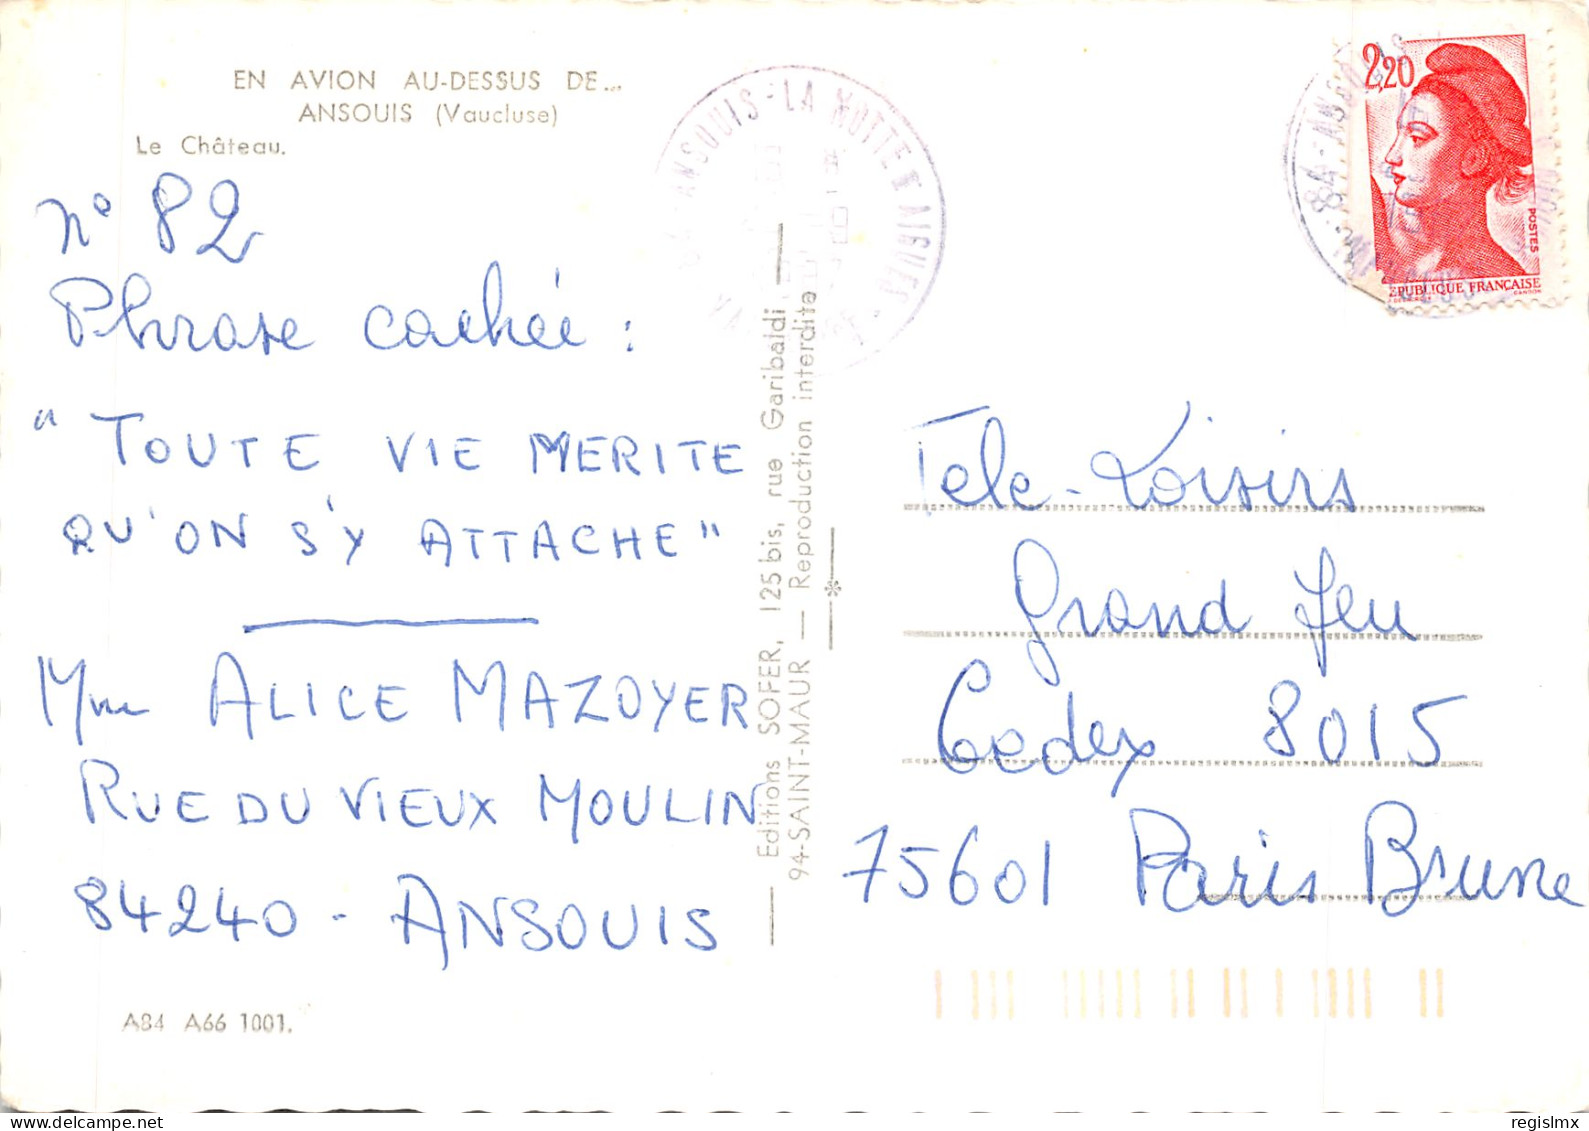 EN AVION AU-DESSUS DE...
ANSOUIS (Vaucluse)
Le Château.
n° 82
Phrase cachée :
"TOUTE VIE MERITE
QU'ON S'Y ATTACHE"
Mme ALICE MAZOYER
RUE DU VIEUX MOULIN
84240 - ANSOUIS
A84 A66 1001.
Editions SOFER, 125 bis, rue Garibaldi
94-SAINT-MAUR — Reproduction interdite
ANSOUIS - LA MOTTE D'AIGUES
84 - ANSOUIS
2,20
POSTES
REPUBLIQUE FRANÇAISE
Tele-Loisirs
Grand Jeu
Cedex 8015
75601 Paris Brune
regislmx